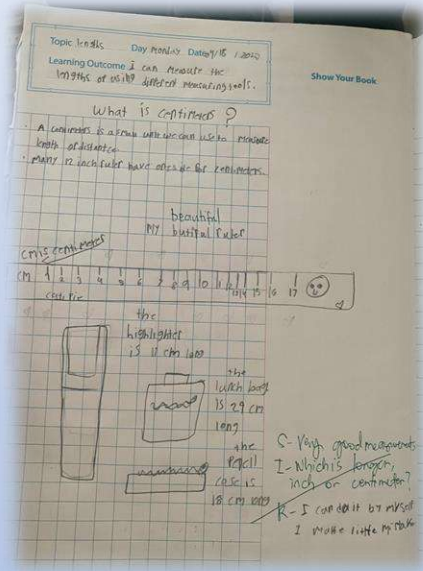 Topic lengths Day Monday Date 9/18 / 2020
Learning Outcome I can measure the
lengths of using different measuring tools.
Show Your Book
What is centimeters ?
• A centimeters is a small unit we can use to measure
length or distance.
• Many 12 inch ruler have one side for centimeters.
beautiful
My butiful ruler
cm is centimeter
CM 1 2 3 4 5 6 7 8 9 10 11 12 13 14 15 16 17
the
highlighter
is 11 cm long
the
lunch bag
is 29 cm
long
the
pencil
case is
18 cm long
S- Very good measurements
I- Which is longer,
inch or centimeter?
R- I can do it by myself
I make little mistake